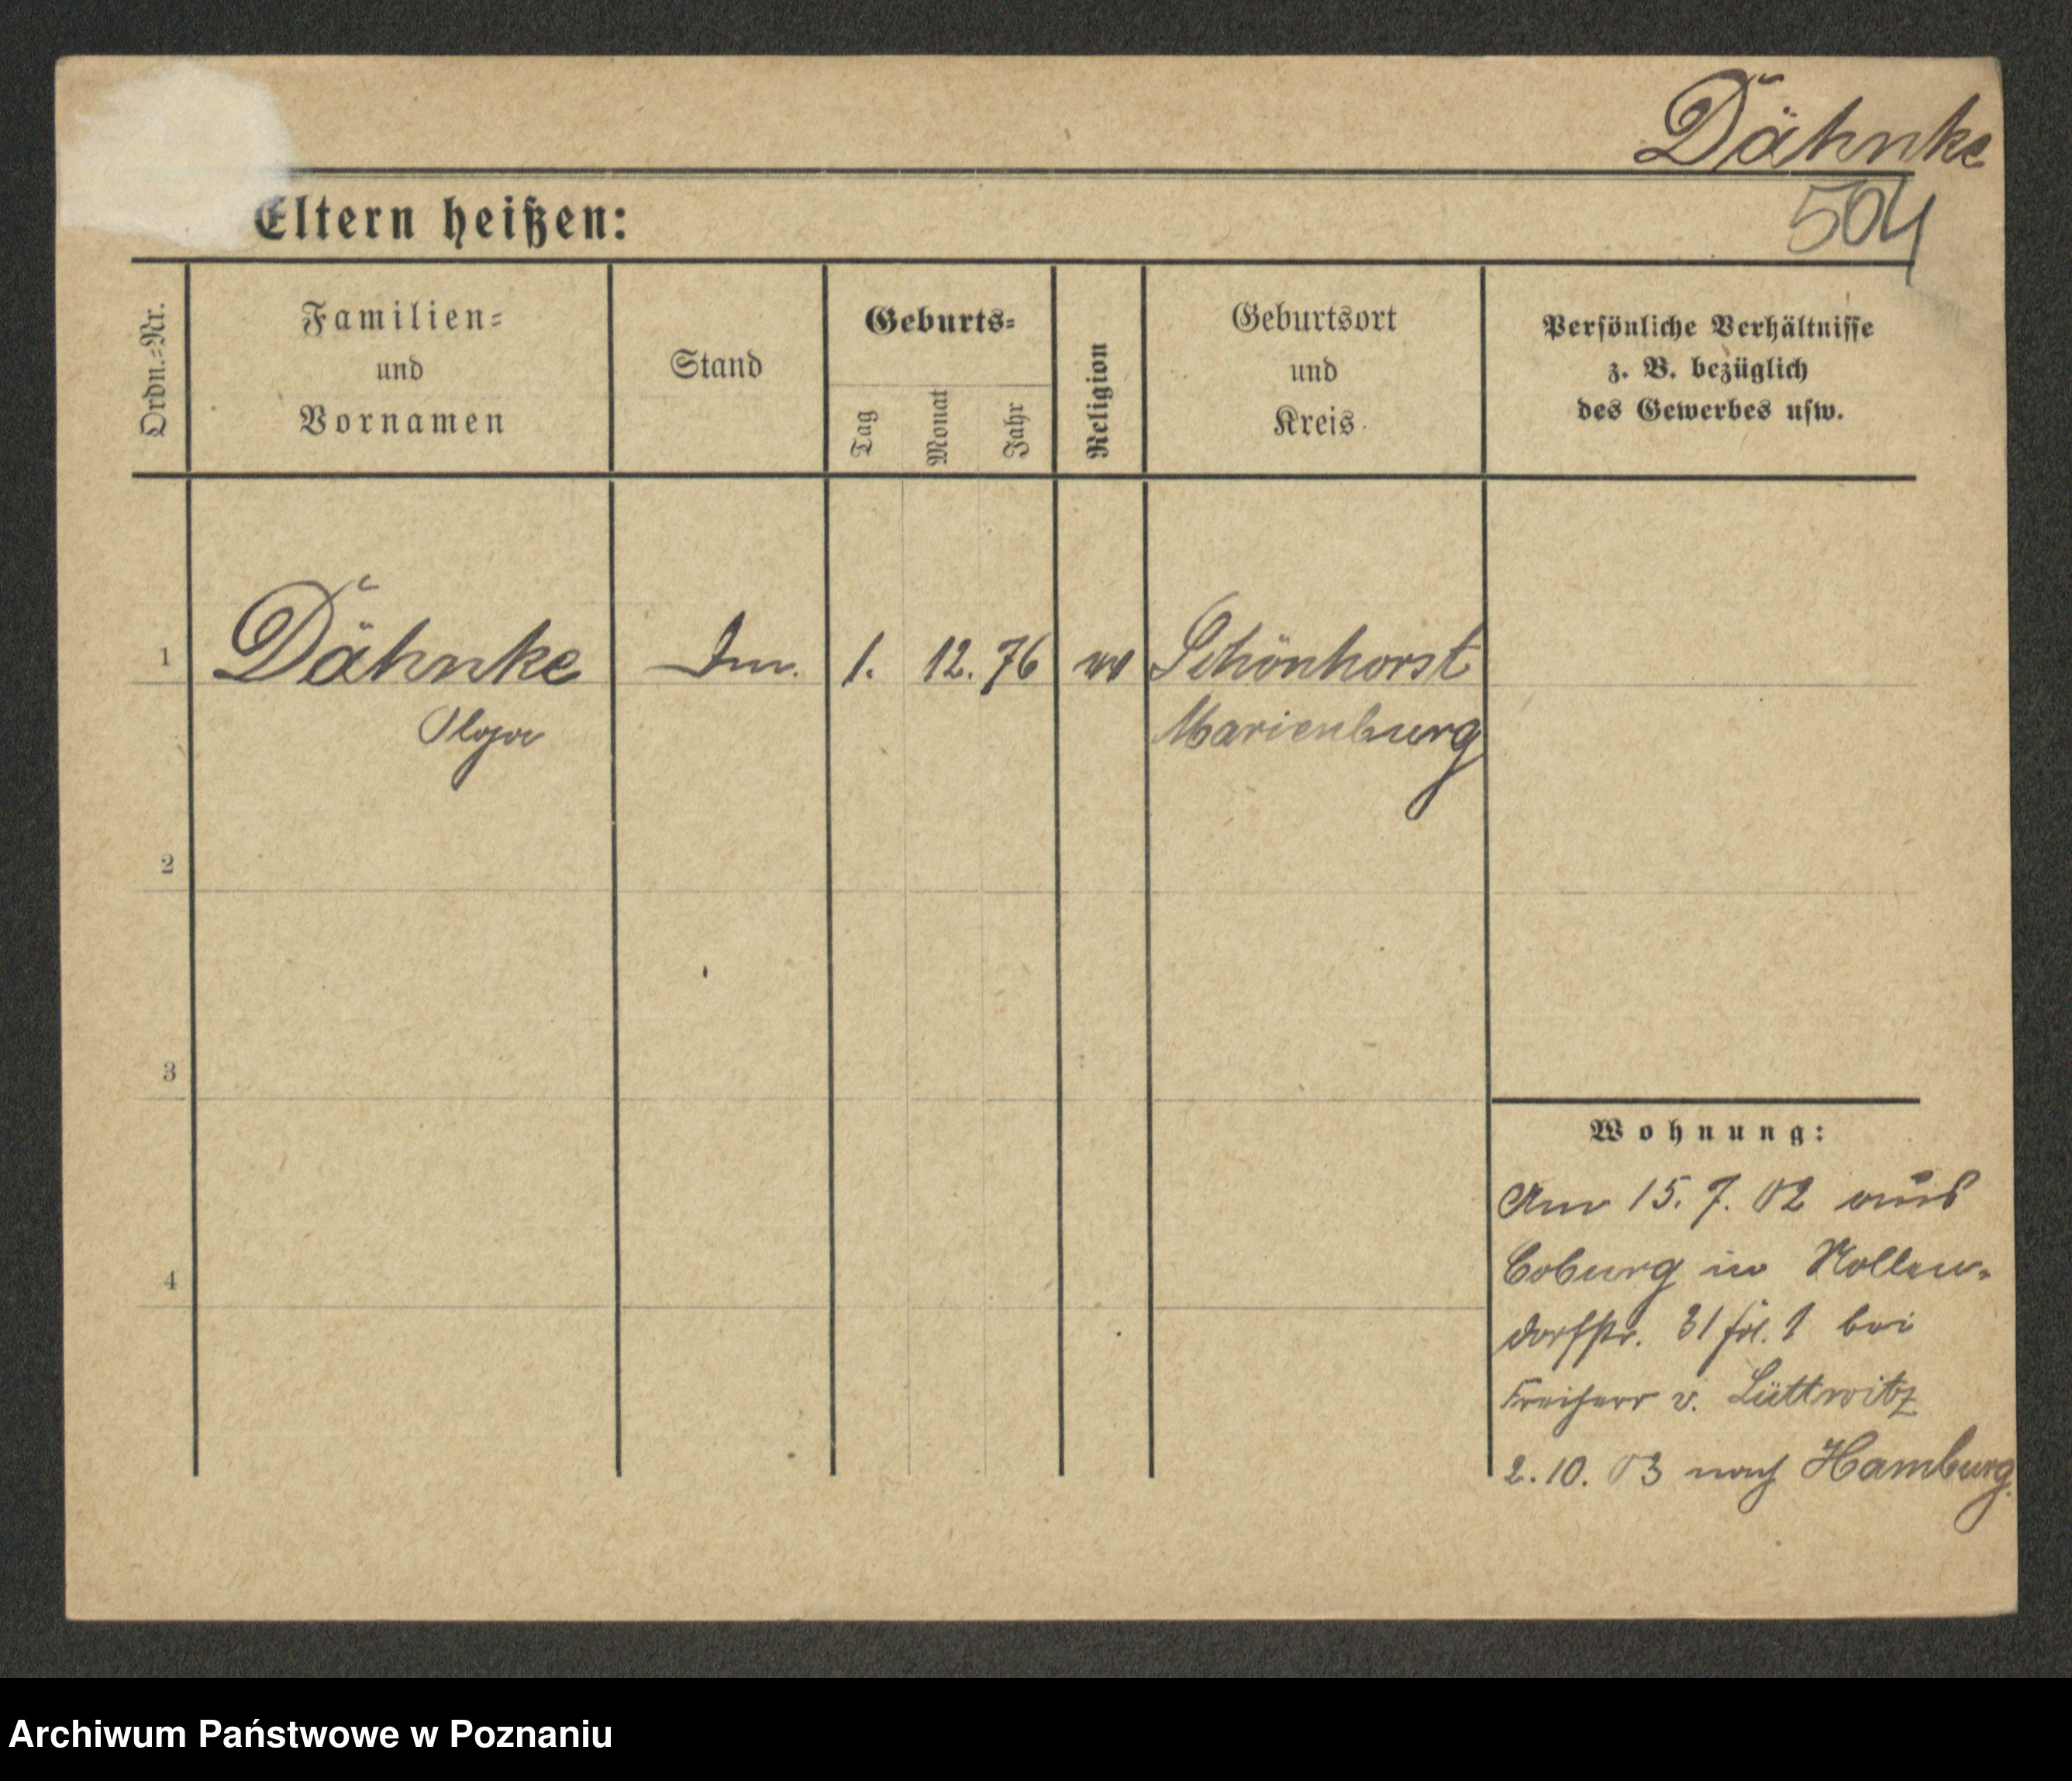 Dähnke
Eltern heißen:
504
Ordn.=Nr.
Familien=
und
Vornamen
Stand
Geburts=
Tag
Monat
Jahr
Religion
Geburtsort
und
Kreis
Persönliche Verhältnisse
z. B. bezüglich
des Gewerbes usw.
1 Dähnke 1. 12. 76 Schönhorst
Olga Marienburg
2
3
4
Wohnung:
Am 15. 7. 02 aus
Coburg in Nollen-
dorfstr. 31 1 bei
Freiherr v. Lüttwitz
2. 10. 03 nach Hamburg.
Archiwum Państwowe w Poznaniu